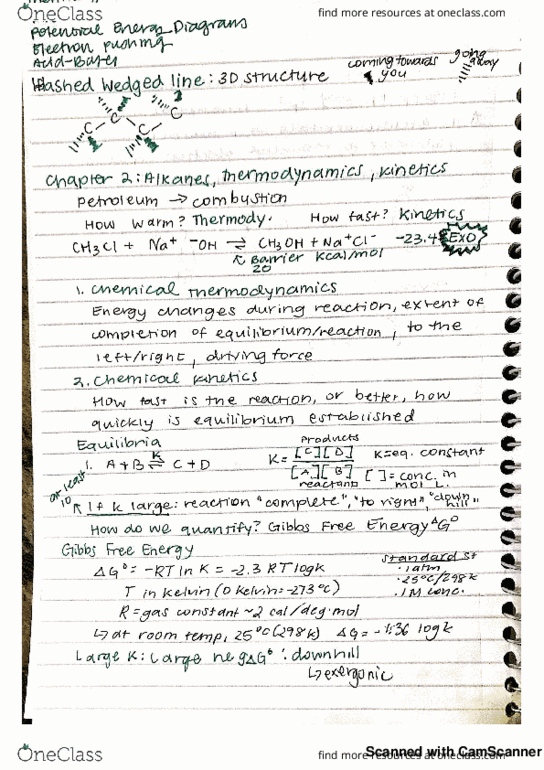 OneClass
find more resources at oneclass.com
Potential Energy Diagrams
Electron pushing
Acid-Bases
Hashed wedged line: 3D structure
coming towards you
going away
C C C C
Chapter 2: Alkanes, thermodynamics, kinetics
Petroleum → combustion
How warm? Thermody. How fast? Kinetics
CH3Cl + Na+ -OH ⇌ CH3OH + Na+Cl- -23.4 EXO
↖ Barrier kcal/mol
20
1. Chemical thermodynamics
Energy changes during reaction, extent of
completion of equilibrium/reaction, to the
left/right, driving force
2. Chemical kinetics
How fast is the reaction, or better, how
quickly is equilibrium established
Equilibria
1. A+B ⇌ C+D
K
Products
K = [C][D] / [A][B]
reactants
K=eq. constant
[ ]=conc. in
mol L
at least 10
↖ If K large: reaction "complete", "to right", "down hill"
How do we quantify? Gibbs Free Energy ΔG°
Gibbs Free Energy
ΔG° = -RT ln K = -2.3 RT log K
T in kelvin (0 kelvin = -273°C)
R = gas constant ~2 cal/deg·mol
standard st
· 1atm
· 25°C/298K
· 1M conc.
↳ at room temp, 25°C (298K) ΔG = -1.36 log K
Large K: Large neg ΔG° : downhill
↳ exergonic
OneClass
find more resources at oneclass.com
Scanned with CamScanner